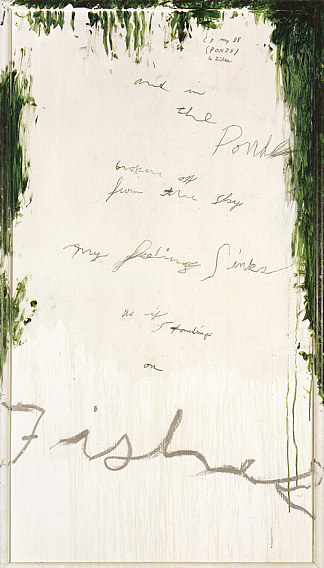 (PONDS)
and in
the
Ponds
broken off
from the sky
my feeling Sinks
as if
standing
on
Fishes